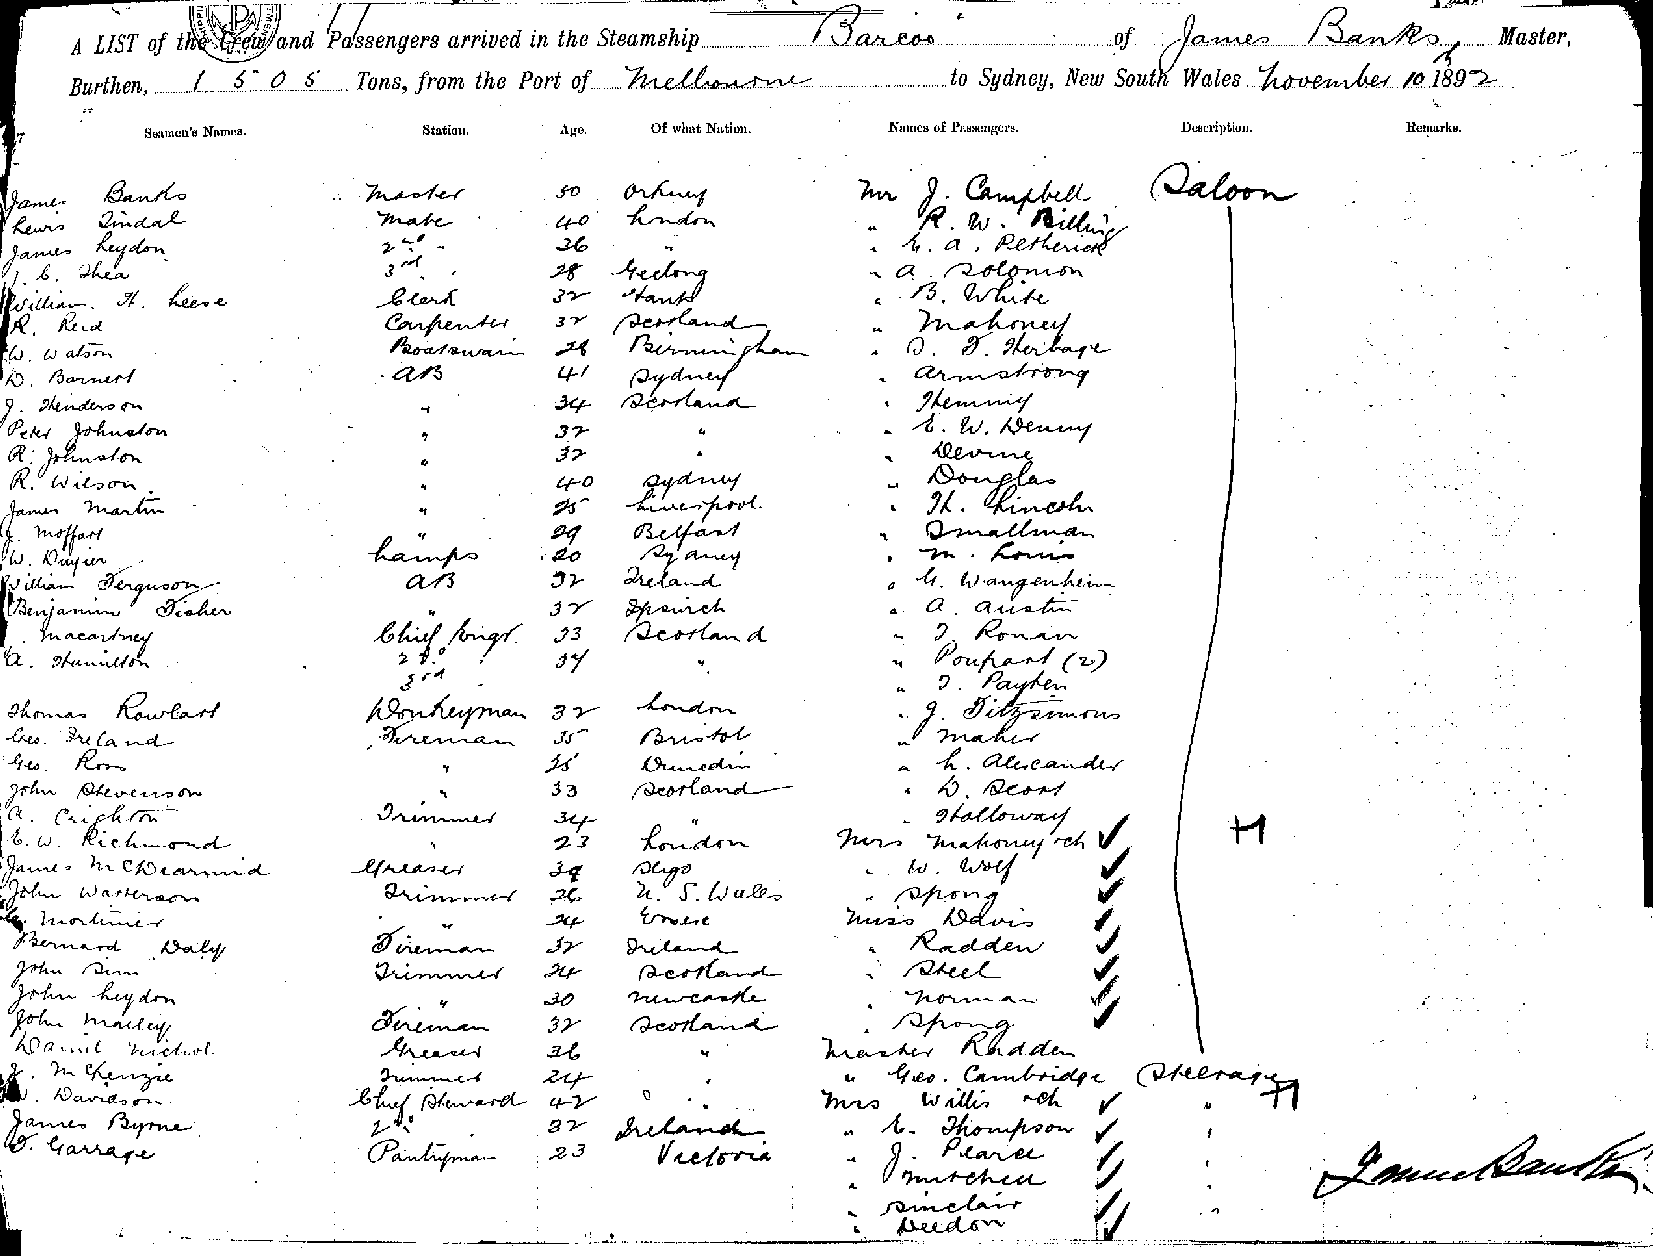 A LIST of the Crew and Passengers arrived in the Steamship Barcoo of James Banks, Master,
Burthen, 1505 Tons, from the Port of Melbourne to Sydney, New South Wales November 10 1892
Seamen's Names. Station. Age. Of what Nation. Names of Passengers. Description. Remarks.
James Banks Master 50 Orkney Mr J. Campbell Saloon
Lewis Tindal Mate 40 London " R. W. Billing
James Leydon 2nd " 26 " " E. A. Petherick
J. C. Shea 3rd " 28 Geelong " A. Solomon
William H. Leese Clerk 32 Hants " B. White
R. Reid Carpenter 32 Scotland " Mahoney
W. Watson Boatswain 28 Birmingham " D. F. Herbage
D. Barnert AB 41 Sydney " Armstrong
J. Henderson " 34 Scotland " Hemmig
Peter Johnston " 32 " " E. W. Denny
R. Johnston " 32 " " Devine
R. Wilson " 40 Sydney " Douglas
James Martin " 25 Liverpool " H. Lincoln
J. Moffart " 29 Belfast " Smallman
W. Dwyer Lamps 20 Sydney " M. Louis
William Ferguson AB 32 Ireland " G. Wangenheim
Benjamin Fisher " 32 Ipswich " A. Austin
Macartney Chief Engr. 33 Scotland " T. Ronan
A. Hamilton 2nd " 37 " " Poupart (2)
3rd " T. Payten
Thomas Rowlart Donkeyman 32 London " J. Fitzsimons
Geo. Ireland Fireman 35 Bristol " Maher
Geo. Ross " 25 Dunedin " L. Alexander
John Stevenson " 33 Scotland " D. Scott
A. Crighton Trimmer 34 " " Holloway
E. W. Richmond " 23 London Mrs Mahoney & ch H
James McDearmid Greaser 39 Sligo " W. Wolf
John Watterson Trimmer 26 N. S. Wales " Spong
Mortimer " 24 Miss Davis
Bernard Daly Fireman 32 Ireland " Radden
John Sim Trimmer 24 Scotland " Steel
John Leydon " 30 Newcastle " Norman
John Malley Fireman 32 Scotland " Spong
Daniel Nichol Greaser 26 " Master Radden
J. McKenzie Trimmer 24 " " Geo. Cambridge Steerage
W. Davidson Chief Steward 42 " Mrs Willis & ch " H
James Byrne 2nd " 32 Ireland " E. Thompson "
F. Garrage Pantryman 23 Victoria " J. Pearce "
" Mitchell "
" Sinclair "
" Deedon
James Banks